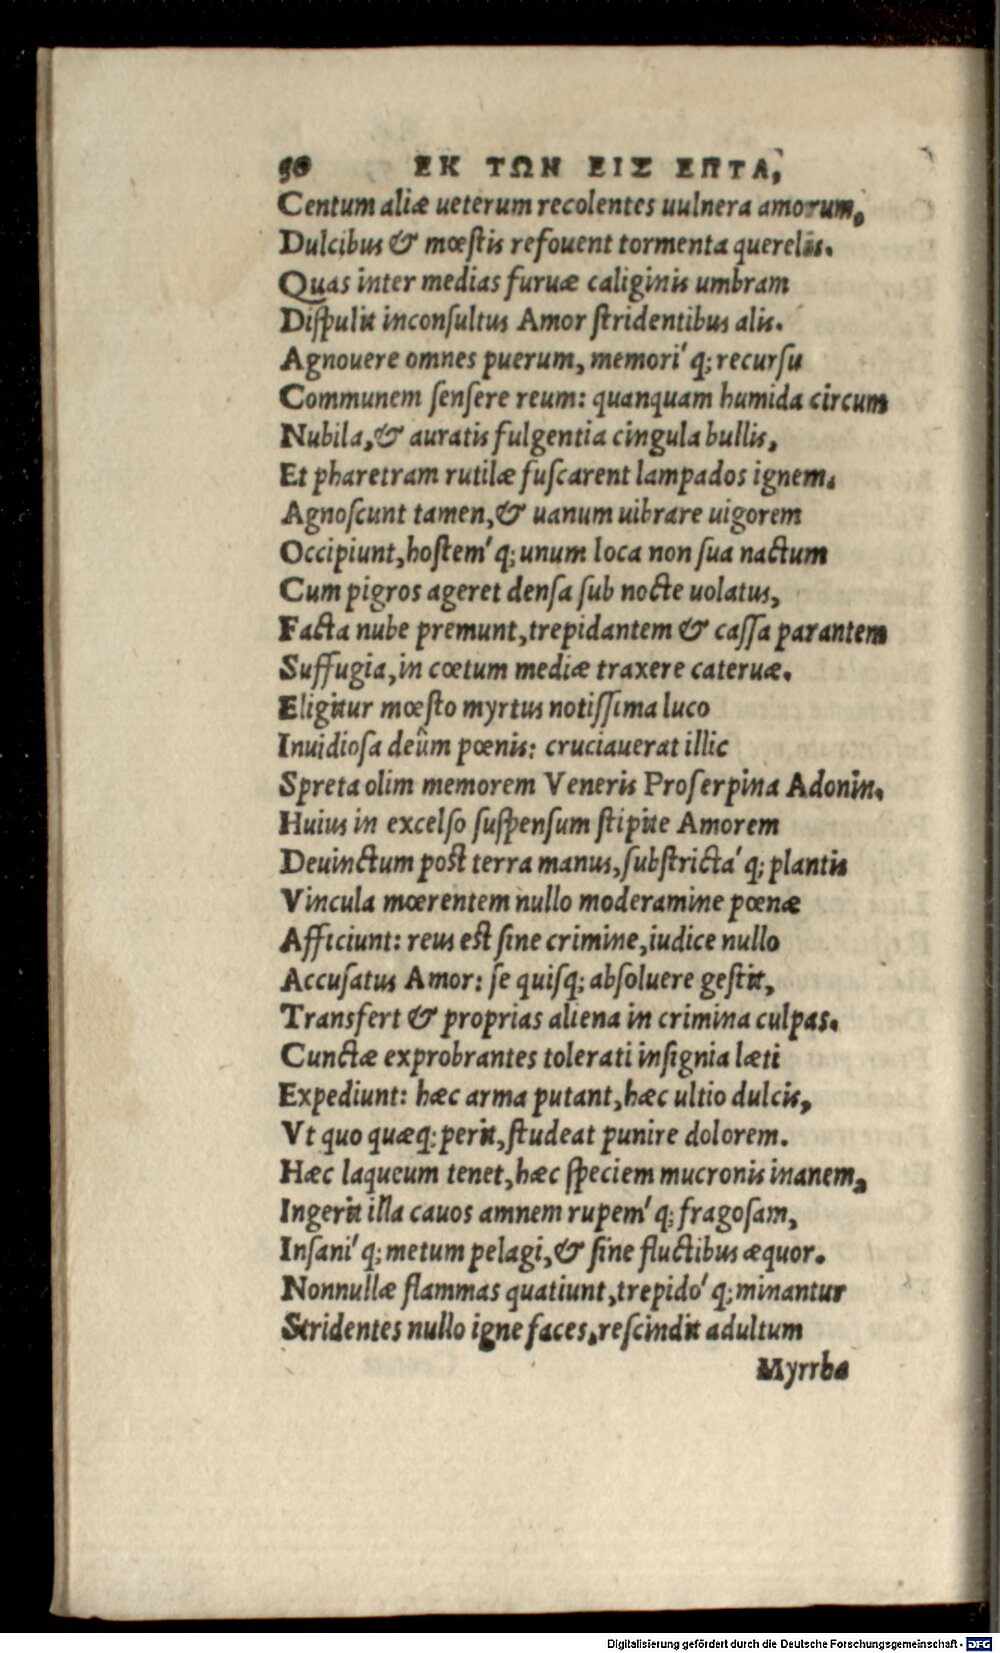 50 ΕΚ ΤΩΝ ΕΙΣ ΕΠΤΑ,
Centum aliæ ueterum recolentes uulnera amorum,
Dulcibus & mœstis refouent tormenta querelis.
Quas inter medias furuæ caliginis umbram
Dispulit inconsultus Amor stridentibus alis.
Agnouere omnes puerum, memori´ q; recursu
Communem sensere reum: quanquam humida circum
Nubila, & auratis fulgentia cingula bullis,
Et pharetram rutilæ fuscarent lampados ignem.
Agnoscunt tamen, & uanum uibrare uigorem
Occipiunt, hostem´ q; unum loca non sua nactum
Cum pigros ageret densa sub nocte uolatus,
Facta nube premunt, trepidantem & cassa parantem
Suffugia, in cœtum mediæ traxere cateruæ.
Eligitur mœsto myrtus notissima luco
Inuidiosa deûm pœnis: cruciauerat illic
Spreta olim memorem Veneris Proserpina Adonin.
Huius in excelso suspensum stipite Amorem
Deuinctum post terra manus, substricta´ q; plantis
Vincula mœrentem nullo moderamine pœnæ
Afficiunt: reus est sine crimine, iudice nullo
Accusatus Amor: se quisq; absoluere gestit,
Transfert & proprias aliena in crimina culpas.
Cunctæ exprobrantes tolerati insignia læti
Expediunt: hæc arma putant, hæc ultio dulcis,
Vt quo quæq; perit, studeat punire dolorem.
Hæc laqueum tenet, hæc speciem mucronis inanem,
Ingerit illa cauos amnem rupem´ q; fragosam,
Insani´ q; metum pelagi, & sine fluctibus æquor.
Nonnullæ flammas quatiunt, trepido´ q; minantur
Stridentes nullo igne faces, rescindit adultum
Myrrha
Digitalisierung gefördert durch die Deutsche Forschungsgemeinschaft - DFG